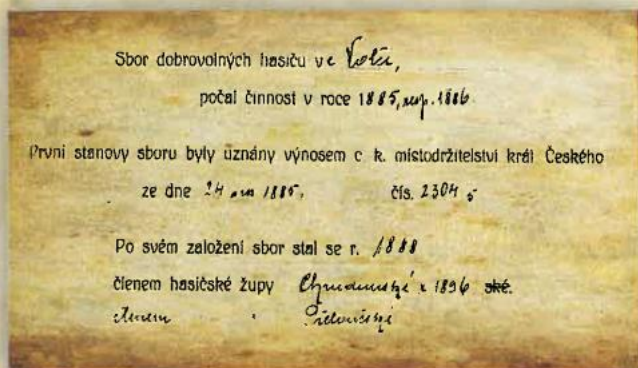 Sbor dobrovolných hasičů ve
počal činnost v roce 1885, resp. 1886
První stanovy sboru byly uznány výnosem c k. místodržitelství král Českého
ze dne 24 1885, čís. 2304 5
Po svém založení sbor stal se r. 1888
členem hasičské župy Chrudimské r 1896 ské.
členem "